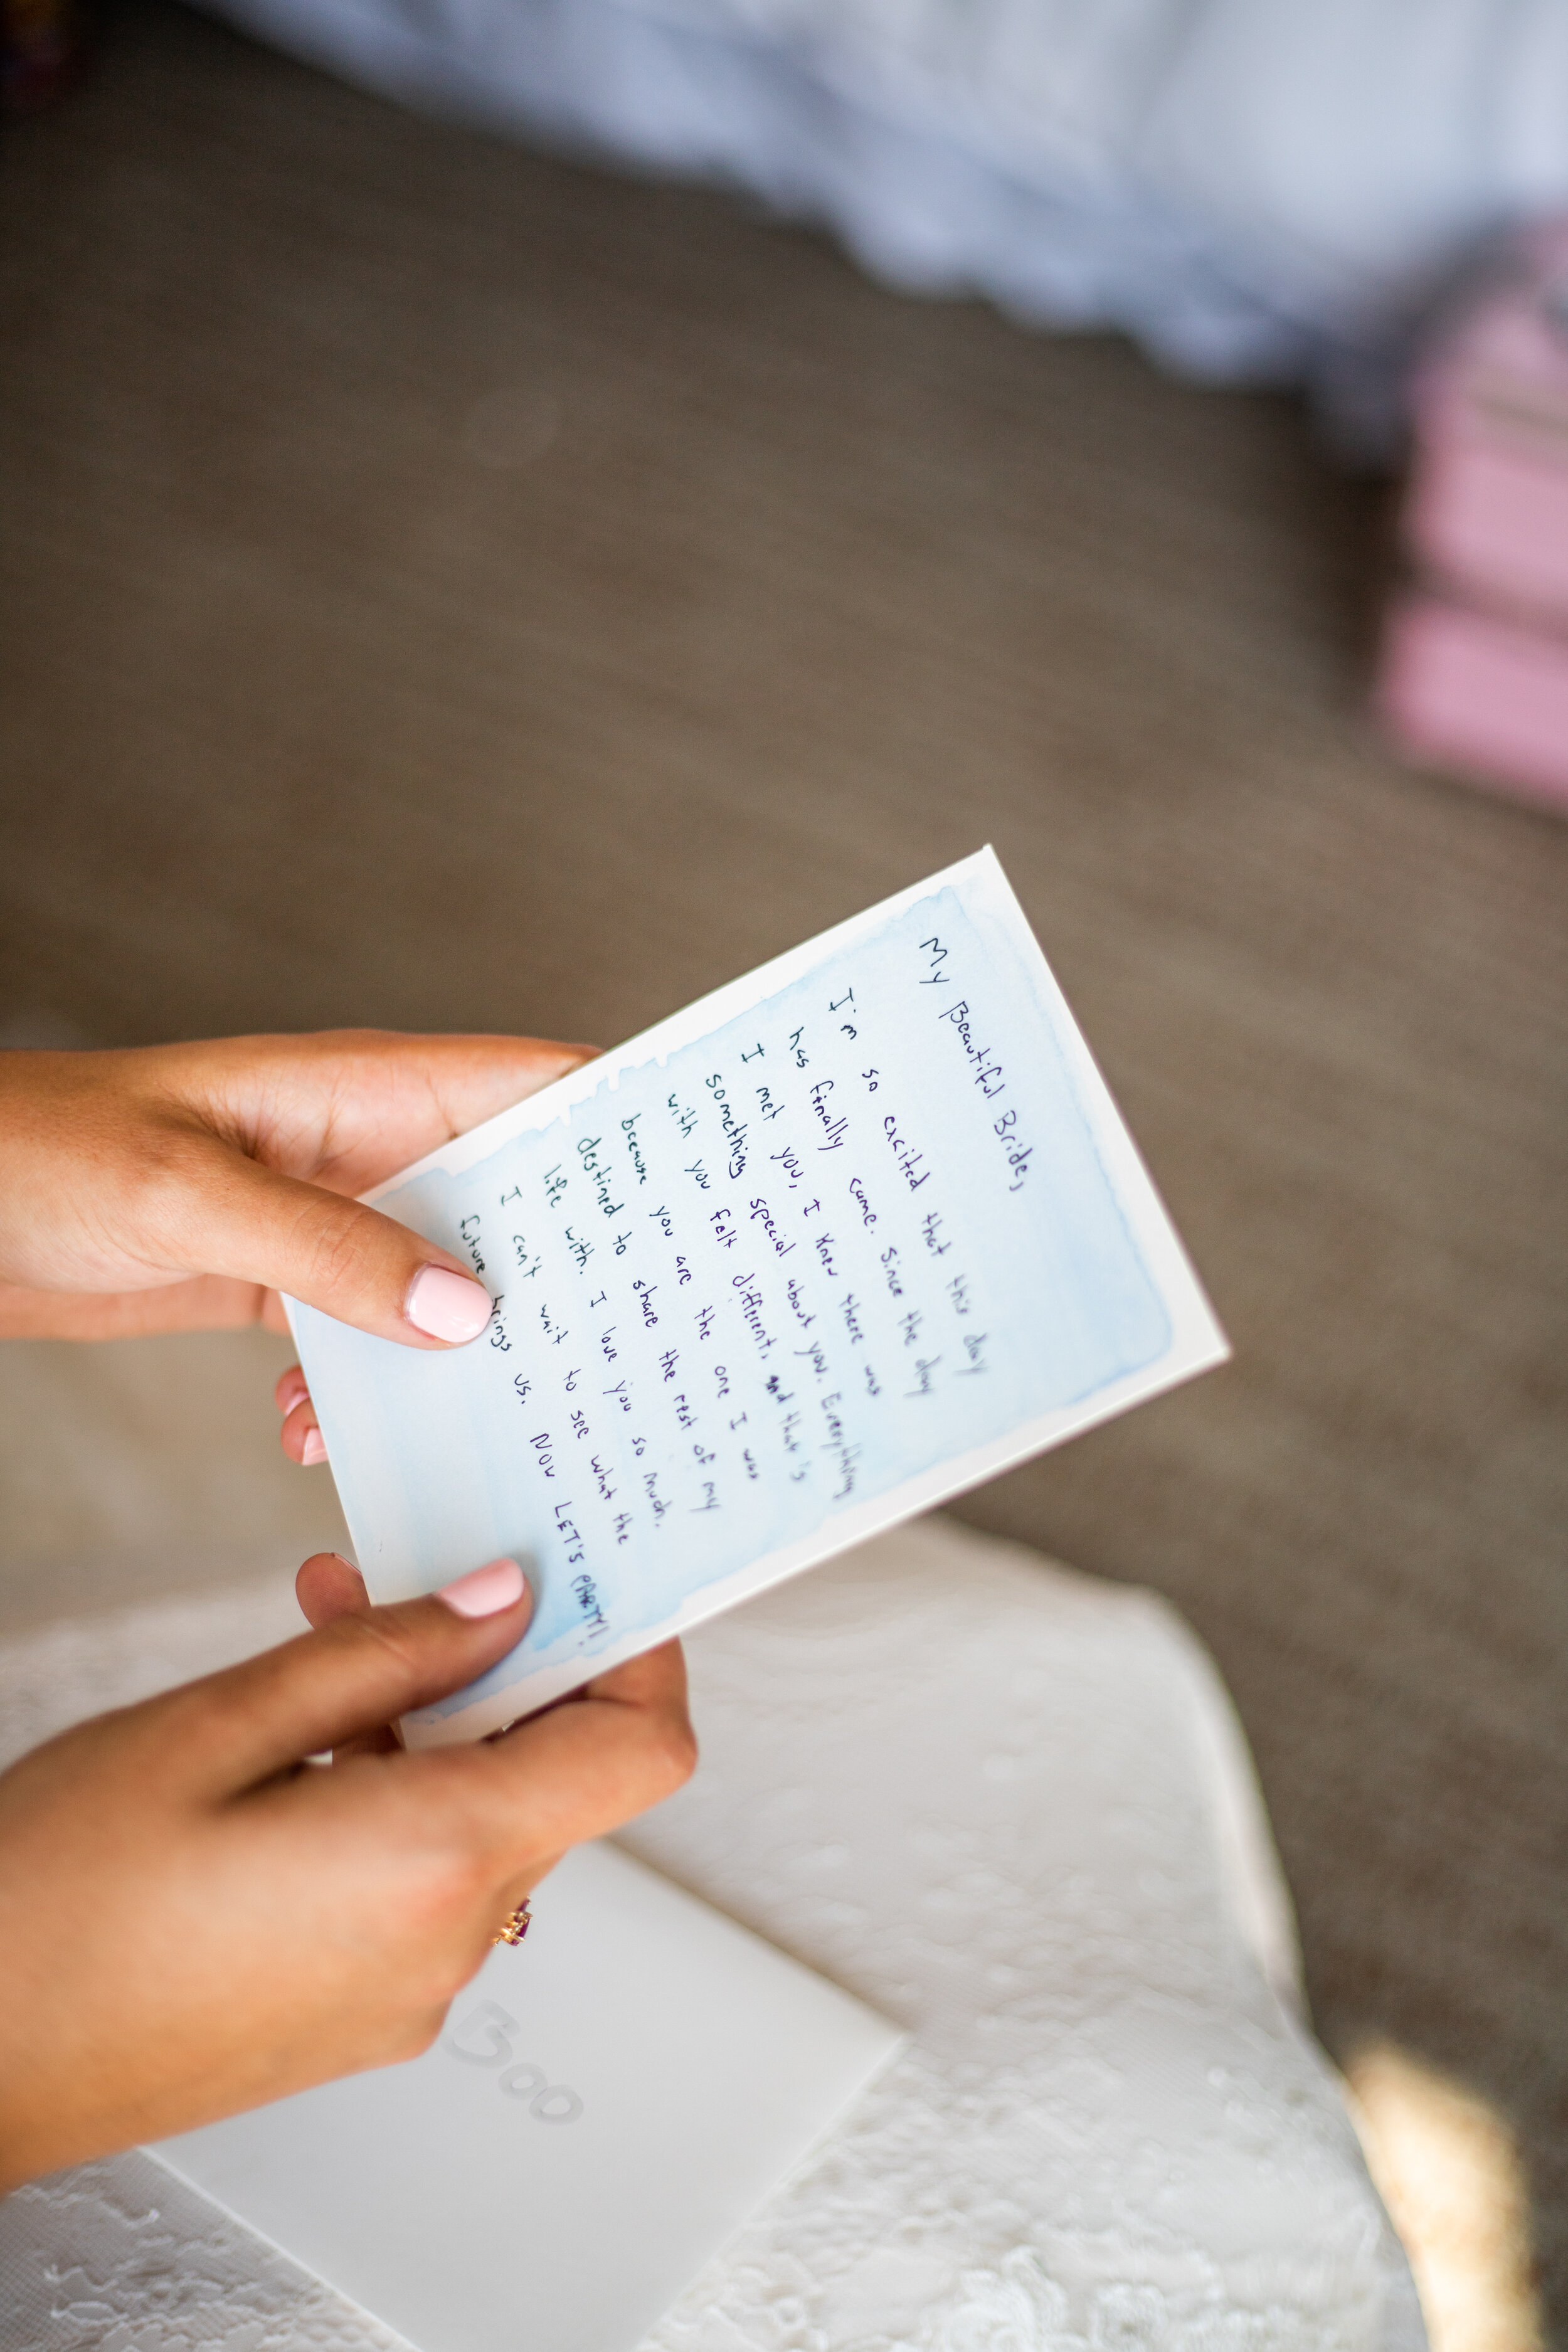 My Beautiful Bride,
I'm so excited that this day
has finally came. Since the day
I met you, I knew there was
something special about you. Everything
with you felt different, and that is
because you are the one I was
destined to share the rest of my
life with. I love you so much.
I can't wait to see what the
future brings us. NOW LET'S PARTY!
Boo